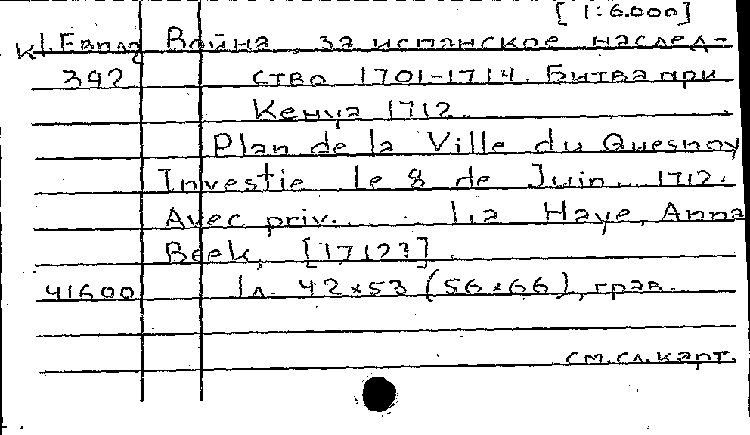 [1:6.000]
Война за испанское наслед-
392 ство 1701-1714. Битва при
1712
Plan de la Ville du Quesnoy
Investie le 8 de Juin 1712.
Avec priv. La Haye, Anna
Beek, [1712?].
41600 1л. 42×53 (56×66), грав.
см.сл.карт.